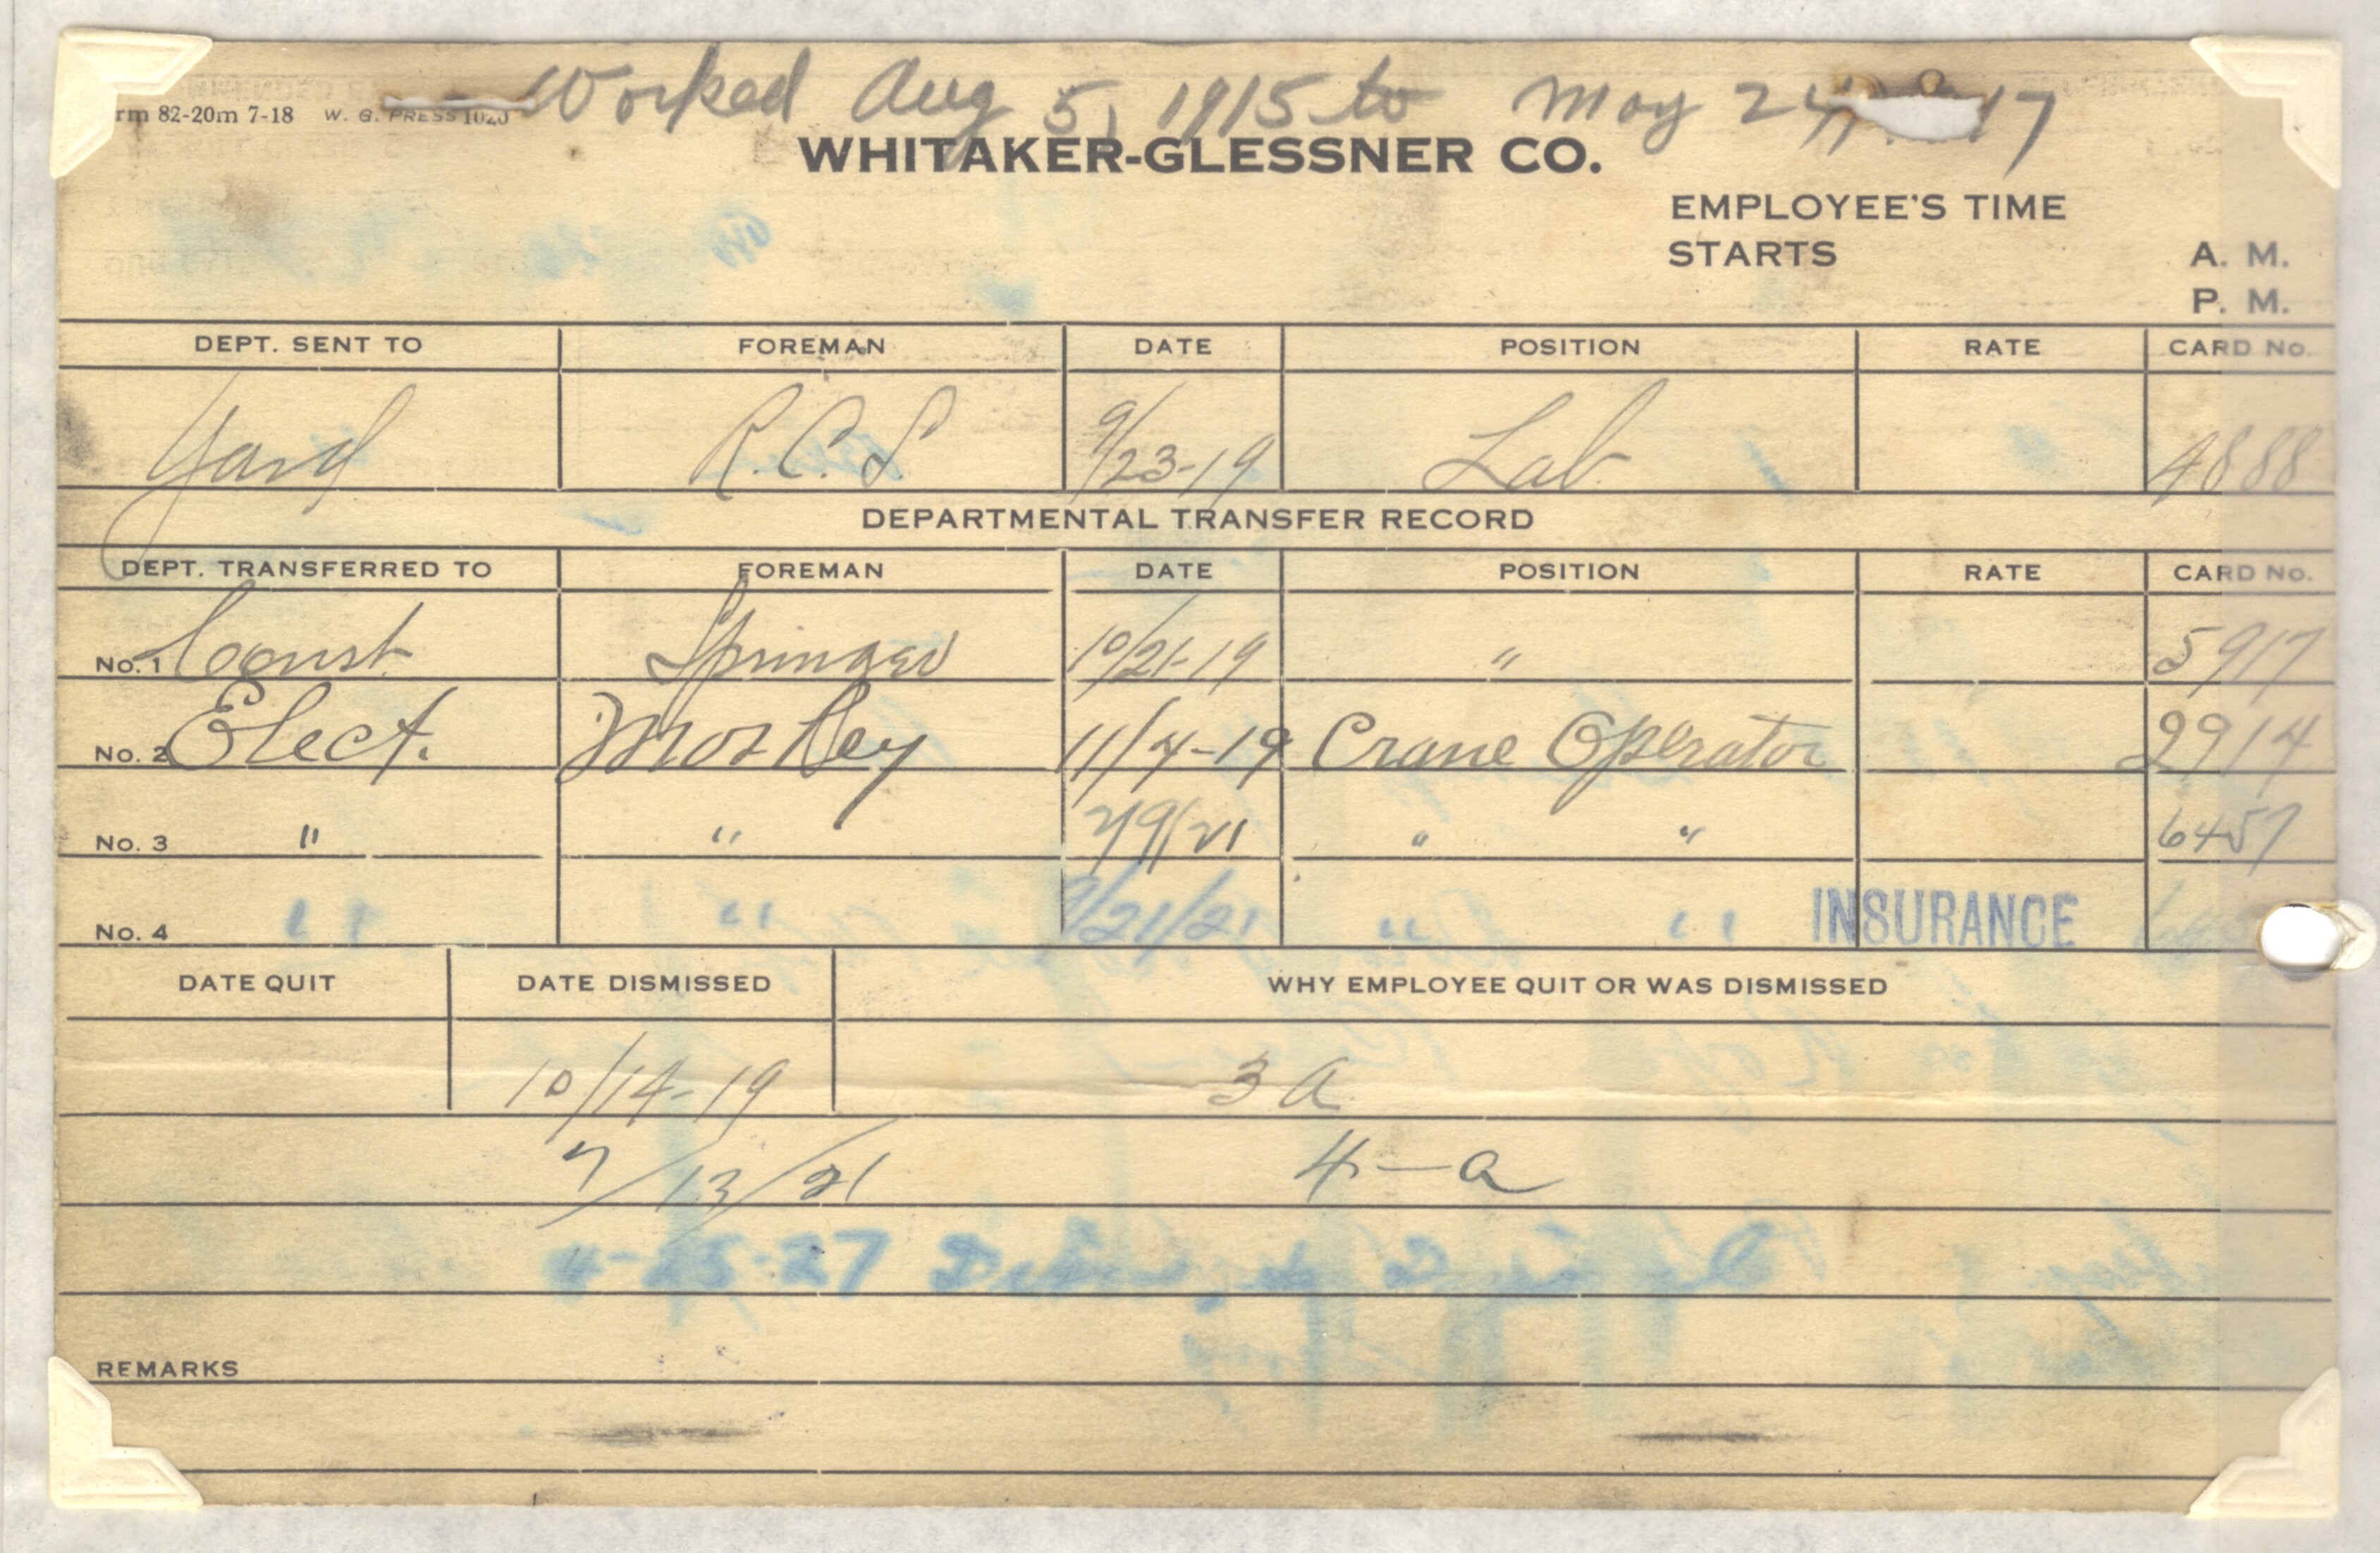 Worked Aug 5, 1915 to May 24, 17
rm 82-20m 7-18 W. G. PRESS 1020
WHITAKER-GLESSNER CO.
EMPLOYEE'S TIME
STARTS
A. M.
P. M.
DEPT. SENT TO FOREMAN DATE POSITION RATE CARD No.
Yard R.C.S. 9/23-19 Lab. 4888
DEPARTMENTAL TRANSFER RECORD
DEPT. TRANSFERRED TO FOREMAN DATE POSITION RATE CARD No.
No. 1 Const. Springer 10/21-19 " 5917
No. 2 Elect. 11/4-19 Crane Operator 2914
No. 3 " " " " 6457
No. 4 " " 9/21/21 " " INSURANCE
DATE QUIT DATE DISMISSED WHY EMPLOYEE QUIT OR WAS DISMISSED
10/14-19 3 a
7/13/21 4-a
4-25-27
REMARKS